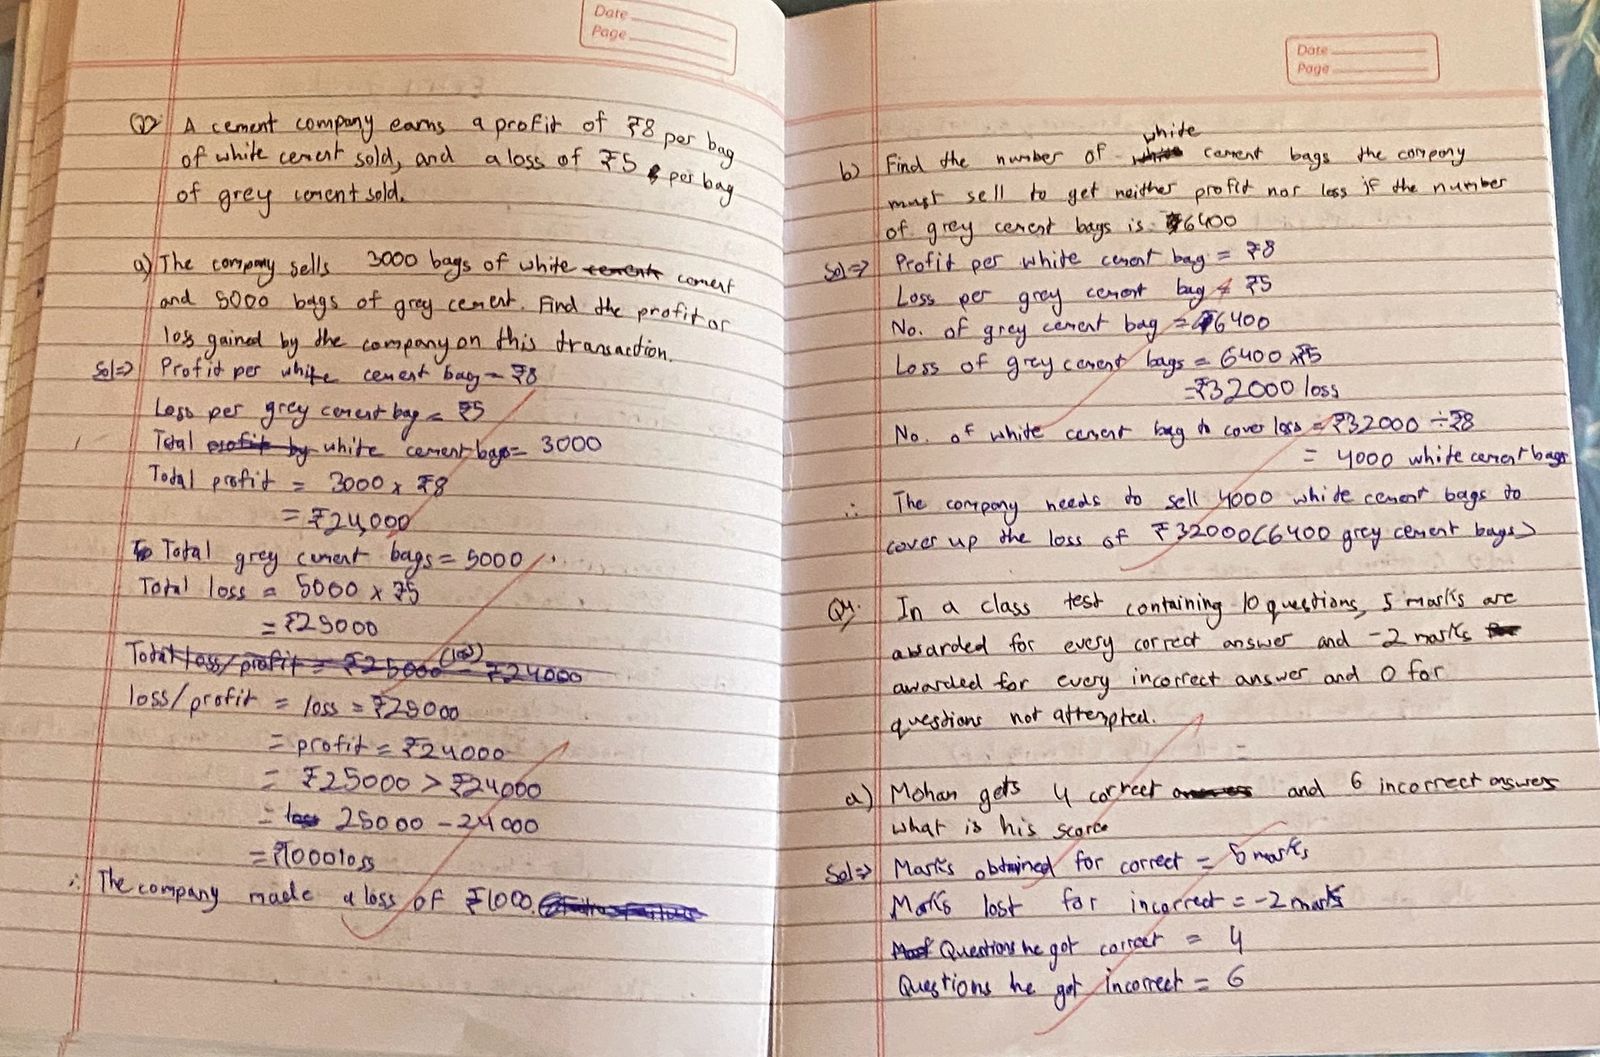 Date
Page
Q3. A cement company earns a profit of ₹8 per bag
of white cement sold, and a loss of ₹5 per bag
of grey cement sold.
a) The company sells 3000 bags of white cement
and 5000 bags of grey cement. Find the profit or
loss gained by the company on this transaction.
Sol⇒ Profit per white cement bag = ₹8
Loss per grey cement bag = ₹5
Total profit by white cement bags = 3000
Total profit = 3000 x ₹8
= ₹24,000
Total grey cement bags = 5000
Total loss = 5000 x ₹5
= ₹25000
Total loss/profit = ₹25000 (loss) - ₹24000
loss/profit = loss = ₹25000
= profit = ₹24000
= ₹25000 > ₹24000
= 25000 - 24000
= ₹1000 loss
∴ The company made a loss of ₹1000.
Date
Page
white
b) Find the number of cement bags the company
must sell to get neither profit nor loss if the number
of grey cement bags is 6400
Sol⇒ Profit per white cement bag = ₹8
Loss per grey cement bag = ₹5
No. of grey cement bag = 6400
Loss of grey cement bags = 6400 x ₹5
= ₹32000 loss
No. of white cement bag to cover loss = ₹32000 ÷ ₹8
= 4000 white cement bags
∴ The company needs to sell 4000 white cement bags to
cover up the loss of ₹32000 (6400 grey cement bags)
Q4. In a class test containing 10 questions, 5 marks are
awarded for every correct answer and -2 marks
awarded for every incorrect answer and 0 for
questions not attempted.
a) Mohan gets 4 correct and 6 incorrect answers
what is his score
Sol⇒ Marks obtained for correct = 5 marks
Marks lost for incorrect = -2 marks
Questions he got correct = 4
Questions he got incorrect = 6